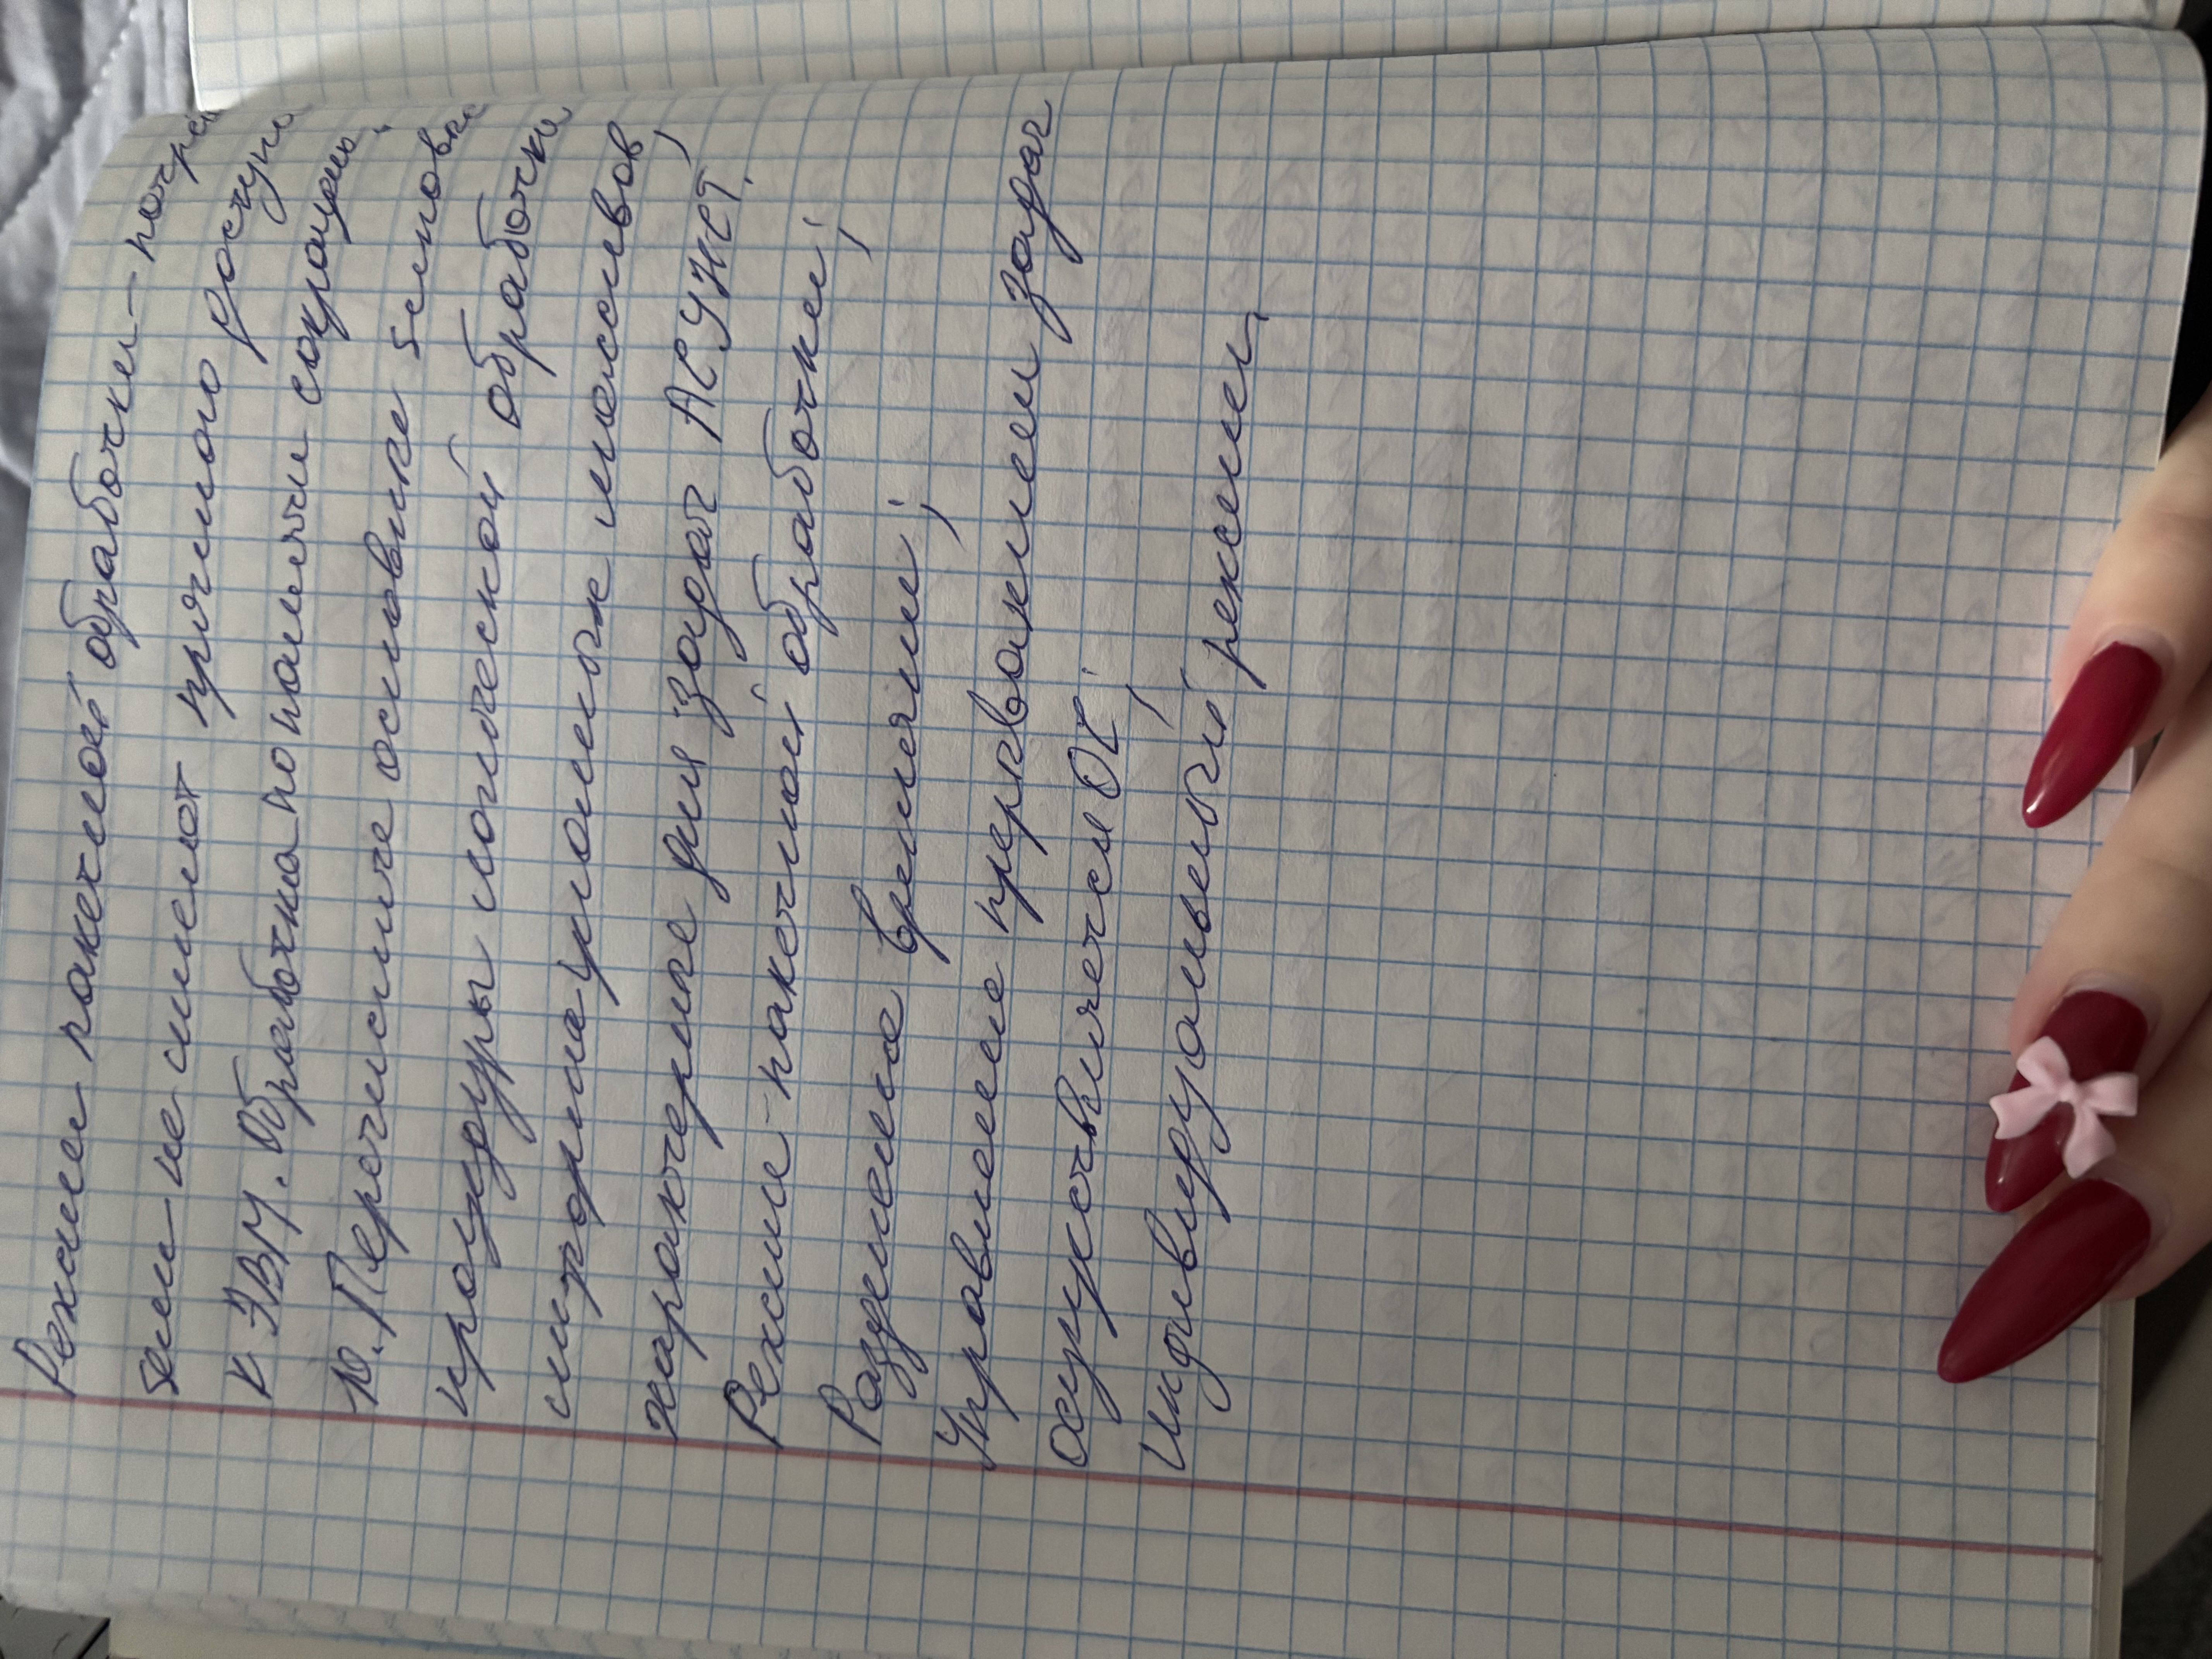 Режим пакетной обработки – потреб
бим – не имеют прямого доступа
к ЭВМ. Обработка по наличи сокращен.
10. Перечислите основные 5 основн
процедуры логической обработки
информационных массивов,
характерные для задач АСУЖТ.
Режим – пакетной обработки;
Разделение времени;
Управление прерваними задач
осуществляется ОС;
Индивидуальный режим,